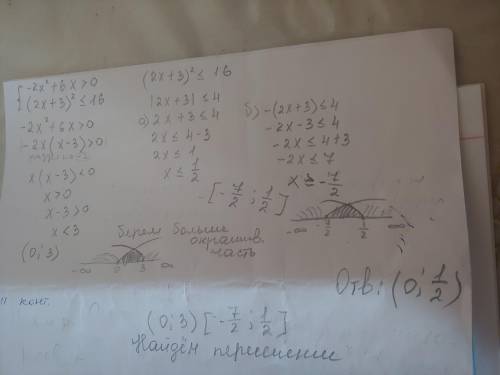 { -2x² + 6x > 0
{ (2x + 3)² ≤ 16
-2x² + 6x > 0
-2x(x - 3) > 0
x(x - 3) < 0
x > 0
x - 3 > 0
x < 3
(0; 3)
-∞ 0 3 ∞
(2x + 3)² ≤ 16
|2x + 3| ≤ 4
а) 2x + 3 ≤ 4
2x ≤ 4 - 3
2x ≤ 1
x ≤ 1/2
б) -(2x + 3) ≤ 4
-2x - 3 ≤ 4
-2x ≤ 4 + 3
-2x ≤ 7
x ≥ -7/2
[-7/2; 1/2]
-∞ -7/2 1/2 ∞
берем больше
окрашив.
часть
Отв: (0; 1/2)
(0; 3) [-7/2; 1/2]
Найдём пересичение